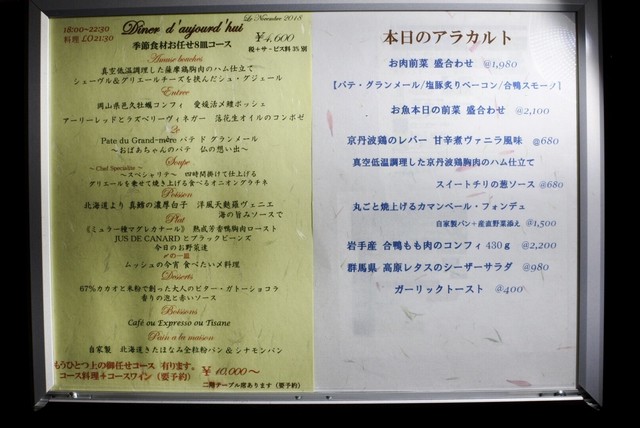 Le Novembre 2018
18:00~22:30
料理 LO21:30
Dîner d'aujourd'hui
¥4,600
季節食材お任せ8皿コース
税+サービス料5%別
Amuse bouches
真空低温調理した薩摩鶏胸肉のハム仕立て
シェーヴル&グリエールチーズを挟んだシュ・グジェール
Entree
岡山県邑久牡蠣コンフィ 愛媛法〆鰆ポッシェ
アーリーレッドとラズベリーヴィネガー 落花生オイルのコンポゼ
Pate du Grand-mère パテ ド グランメール
~おばあちゃんのパテ 仏の想い出~
Soupe
~ Chef Specialite ~
~スペシャリテ~ 四時間掛けて仕上げる
グリエールを乗せて焼き上げる食べるオニオングラチネ
Poisson
北海道より 真鱈の濃厚白子 洋風天麩羅ヴェニエ
海の旨みソースで
Plat
《ミュラー種マグレカナール》 熟成芳香鴨胸肉ロースト
JUS DE CANARD とブラックビーンズ
今日のお野菜達
〆の一皿
ムッシュの今宵 食べたい〆料理
Desserts
67%カカオと米粉で創った大人のビター・ガトーショコラ
香りの泡と赤いソース
Boissons
Cafè ou Expresso ou Tisane
Pain a la maison
自家製 北海道きたほなみ全粒粉パン&シナモンパン
もうひとつ上の御任せコース 有ります。
コース料理+コースワイン(要予約)
¥10,000~
二階テーブル席あります(要予約)
本日のアラカルト
お肉前菜 盛合わせ @1,980
【パテ・グランメール/塩豚炙りベーコン/合鴨スモーク】
お魚本日の前菜 盛合わせ @2,100
京丹波鶏のレバー 甘辛煮ヴァニラ風味 @680
真空低温調理した京丹波鶏胸肉のハム仕立て
スイートチリの葱ソース @680
丸ごと焼上げるカマンベール・フォンデュ
自家製パン+産直野菜添え @1,500
岩手産 合鴨もも肉のコンフィ430g @2,200
群馬県 高原レタスのシーザーサラダ @980
ガーリックトースト @400